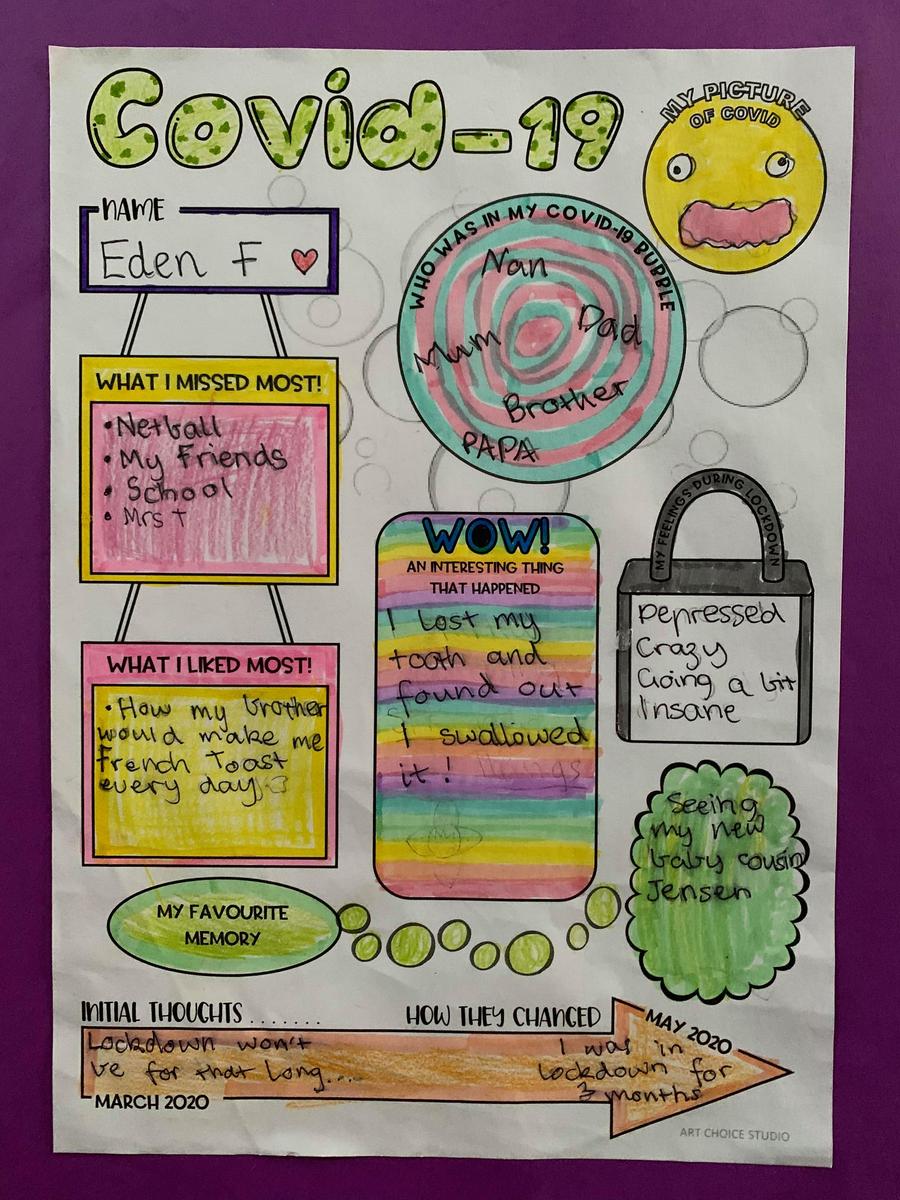 Covid-19
MY PICTURE
OF COVID
NAME
Eden F
WHO WAS IN MY COVID-19 BUBBLE
Nan
Dad
Mum
Brother
PAPA
WHAT I MISSED MOST!
• Netball
• My Friends
• School
• Mrs T
MY FEELINGS DURING LOCKDOWN
Depressed
Crazy
Going a bit
Insane
WOW!
AN INTERESTING THING
THAT HAPPENED
I lost my
tooth and
found out
I swallowed
it!
WHAT I LIKED MOST!
• How my brother
would make me
French Toast
every day
MY FAVOURITE
MEMORY
Seeing
my new
baby cousin
Jensen
INITIAL THOUGHTS .......
HOW THEY CHANGED
Lockdown won't
be for that long....
MARCH 2020
MAY 2020
I was in
lockdown for
3 months
ART CHOICE STUDIO